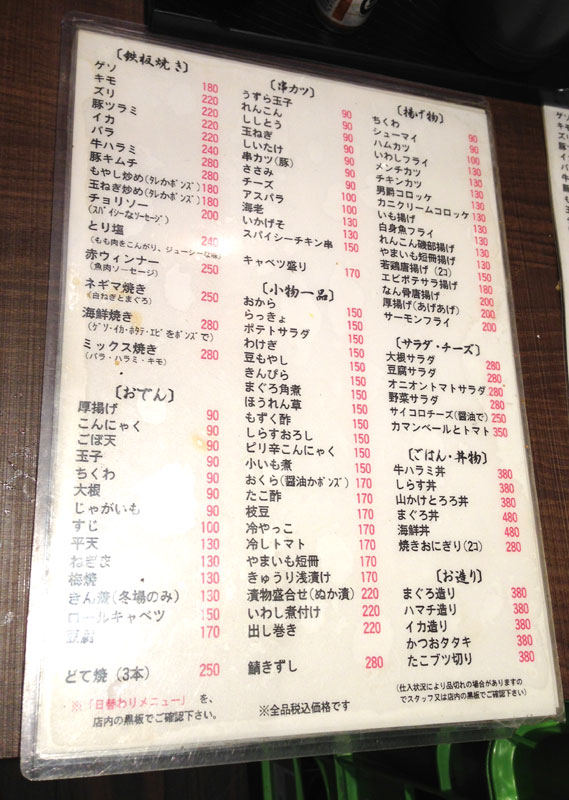 〔鉄板焼き〕
ゲソ 180
キモ 220
ズリ 220
豚ツラミ 220
イカ 220
バラ 240
牛ハラミ 280
豚キムチ 280
もやし炒め(タレかポンズ) 180
玉ねぎ炒め(タレかポンズ) 180
チョリソー 200
(スパイシーなソーセージ)
とり塩 240
(もも肉をこんがり、ジューシーな味)
赤ウィンナー 250
(魚肉ソーセージ)
ネギマ焼き 250
(白ねぎとまぐろ)
海鮮焼き 280
(ゲソ・イカ・ホタテ・エビをポンズで)
ミックス焼き 280
(バラ・ハラミ・キモ)
〔おでん〕
厚揚げ 90
こんにゃく 90
ごぼ天 90
玉子 90
ちくわ 90
大根 90
じゃがいも 90
すじ 100
平天 130
ねぎま 130
梅焼 130
きん着(冬場のみ) 130
ロールキャベツ 150
170
どて焼(3本) 250
※「日替わりメニュー」を、
店内の黒板でご確認下さい。
〔串カツ〕
うずら玉子 90
れんこん 90
ししとう 90
玉ねぎ 90
しいたけ 90
串カツ(豚) 90
ささみ 90
チーズ 90
アスパラ 100
海老 100
いかげそ 130
スパイシーチキン串 150
キャベツ盛り 170
〔小物一品〕
おから 150
らっきょ 150
ポテトサラダ 150
わけぎ 150
豆もやし 150
きんぴら 150
まぐろ角煮 150
ほうれん草 150
もずく酢 150
しらすおろし 150
ピリ辛こんにゃく 150
小いも煮 150
おくら(醤油かポンズ) 170
たこ酢 170
枝豆 170
冷やっこ 170
冷しトマト 170
やまいも短冊 170
きゅうり浅漬け 170
漬物盛合せ(ぬか漬) 220
いわし煮付け 220
出し巻き 220
鯖きずし 280
※全品税込価格です
〔揚げ物〕
ちくわ 90
シューマイ 90
ハムカツ 100
いわしフライ 130
メンチカツ 130
チキンカツ 130
男爵コロッケ 130
カニクリームコロッケ 130
いも揚げ 130
白身魚フライ 130
れんこん磯部揚げ 130
やまいも短冊揚げ 130
若鶏唐揚げ(2コ) 150
エビポテサラ揚げ 180
なん骨唐揚げ 200
厚揚げ(あげあげ) 200
サーモンフライ 200
〔サラダ・チーズ〕
大根サラダ 280
豆腐サラダ 280
オニオントマトサラダ 280
野菜サラダ 280
サイコロチーズ(醤油で) 250
カマンベールとトマト 350
〔ごはん・丼物〕
牛ハラミ丼 380
しらす丼 380
山かけとろろ丼 380
まぐろ丼 480
海鮮丼 480
焼きおにぎり(2コ) 280
〔お造り〕
まぐろ造り 380
ハマチ造り 380
イカ造り 380
かつおタタキ 380
たこブツ切り 380
(仕入状況により品切れの場合がありますの
でスタッフ又は店内の黒板でご確認下さい)